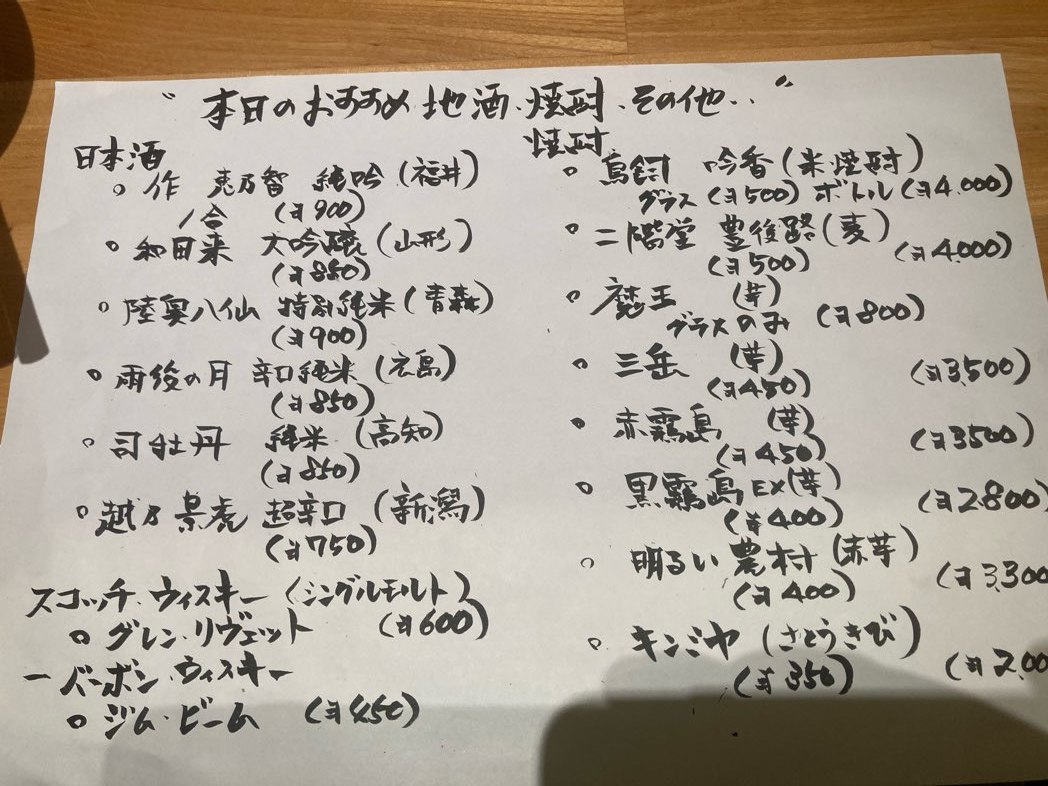 〝本日のおすすめ地酒.焼酎.その他..〟
日本酒
。作 恵乃智 純吟 (福井)
1合 (¥900)
。和田来 大吟醸 (山形)
(¥850)
。陸奥八仙 特別純米 (青森)
(¥900)
。雨後の月 辛口純米 (広島)
(¥850)
。司牡丹 純米 (高知)
(¥850)
。越乃景虎 超辛口 (新潟)
(¥750)
スコッチ.ウィスキー (シングルモルト)
。グレン.リヴェット (¥600)
ーバーボン.ウィスキー
。ジム.ビーム (¥450)
焼酎
。鳥飼 吟香 (米焼酎)
グラス (¥500) ボトル (¥4.000)
。二階堂 豊後路 (麦)
(¥500) (¥4.000)
。魔王 (芋)
グラスのみ (¥800)
。三岳 (芋)
(¥450) (¥3,500)
。赤霧島 (芋)
(¥450) (¥3500)
。黒霧島EX(芋)
(¥400) (¥2.800)
。明るい農村 (赤芋)
(¥400) (¥3.300
。キンミヤ (さとうきび)
(¥350) (¥2.00